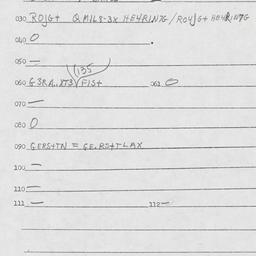 030 ROJG+ QMIL8-3X HE4RIN7G/RO4JG+ HE4RIN7G
040 0
050 —
(135)
060 G3RA..XT3Y FIST 061 0
070 —
080 0
090 GERS+TN = GE.RS+TLAX
100 —
110 —
111 — 112 —